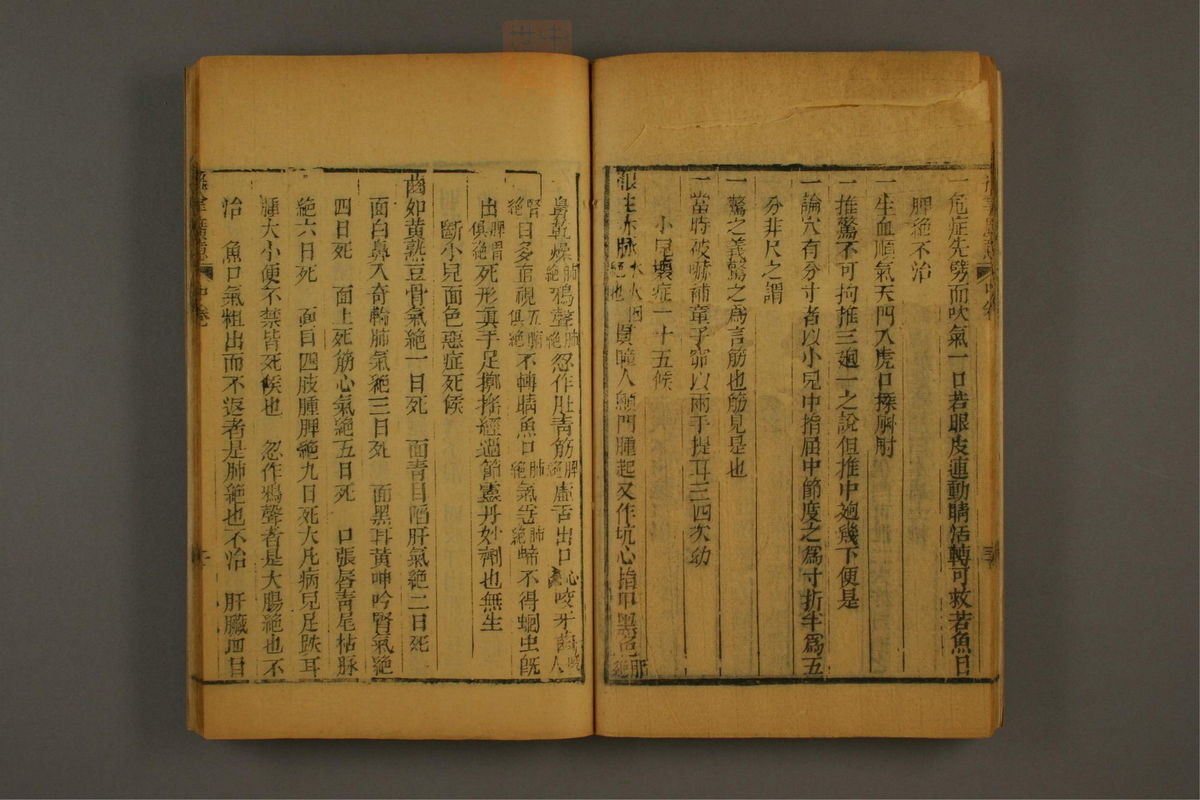 一危症先劈面吹氣一口若眼皮連動睛活轉可救若魚口
脾絕不治
一生血順氣天門入虎口揉𦙶肘
一推驚不可拘推三廻一之說但推中廻幾下便是
一論穴有分寸者以小兒中指屈中節度之爲寸折半爲五
分非尺之謂
一驚之義驚之爲言筋也筋見是也
一當時被嚇補童子 以兩手提耳三四次効
小兒壞症一十五候
眼生赤脉 貫瞳人顖門腫起又作坑心指甲黑色
鼻乾燥肺絕鴉聲肺絕忽作肚青筋脾絕虛舌出口心絕咬牙
腎絕目多直視五臟俱絕不轉睛魚口肺絕氣急肺絕啼不得蛔虫既
出脾胃俱絕死形真手足擲搖經過節靈丹妙劑也無生
斷小兒面色惡症死候
齒如黄熟豆骨氣絕一日死　面青目陷肝氣絕二日死
面白鼻入奇輪肺氣絕三日死　面黑耳黄呻吟腎氣絕
四日死　面上死筋心氣絕五日死　口張唇青尾枯脉
絕六日死　面目四肢腫脾絕九日死大凡病兒足趺耳
腫大小便不禁皆死候也　忽作鴉聲者是大腸絕也不
治　魚口氣粗出而不返者是肺絕也不治　肝臟面目
中卷